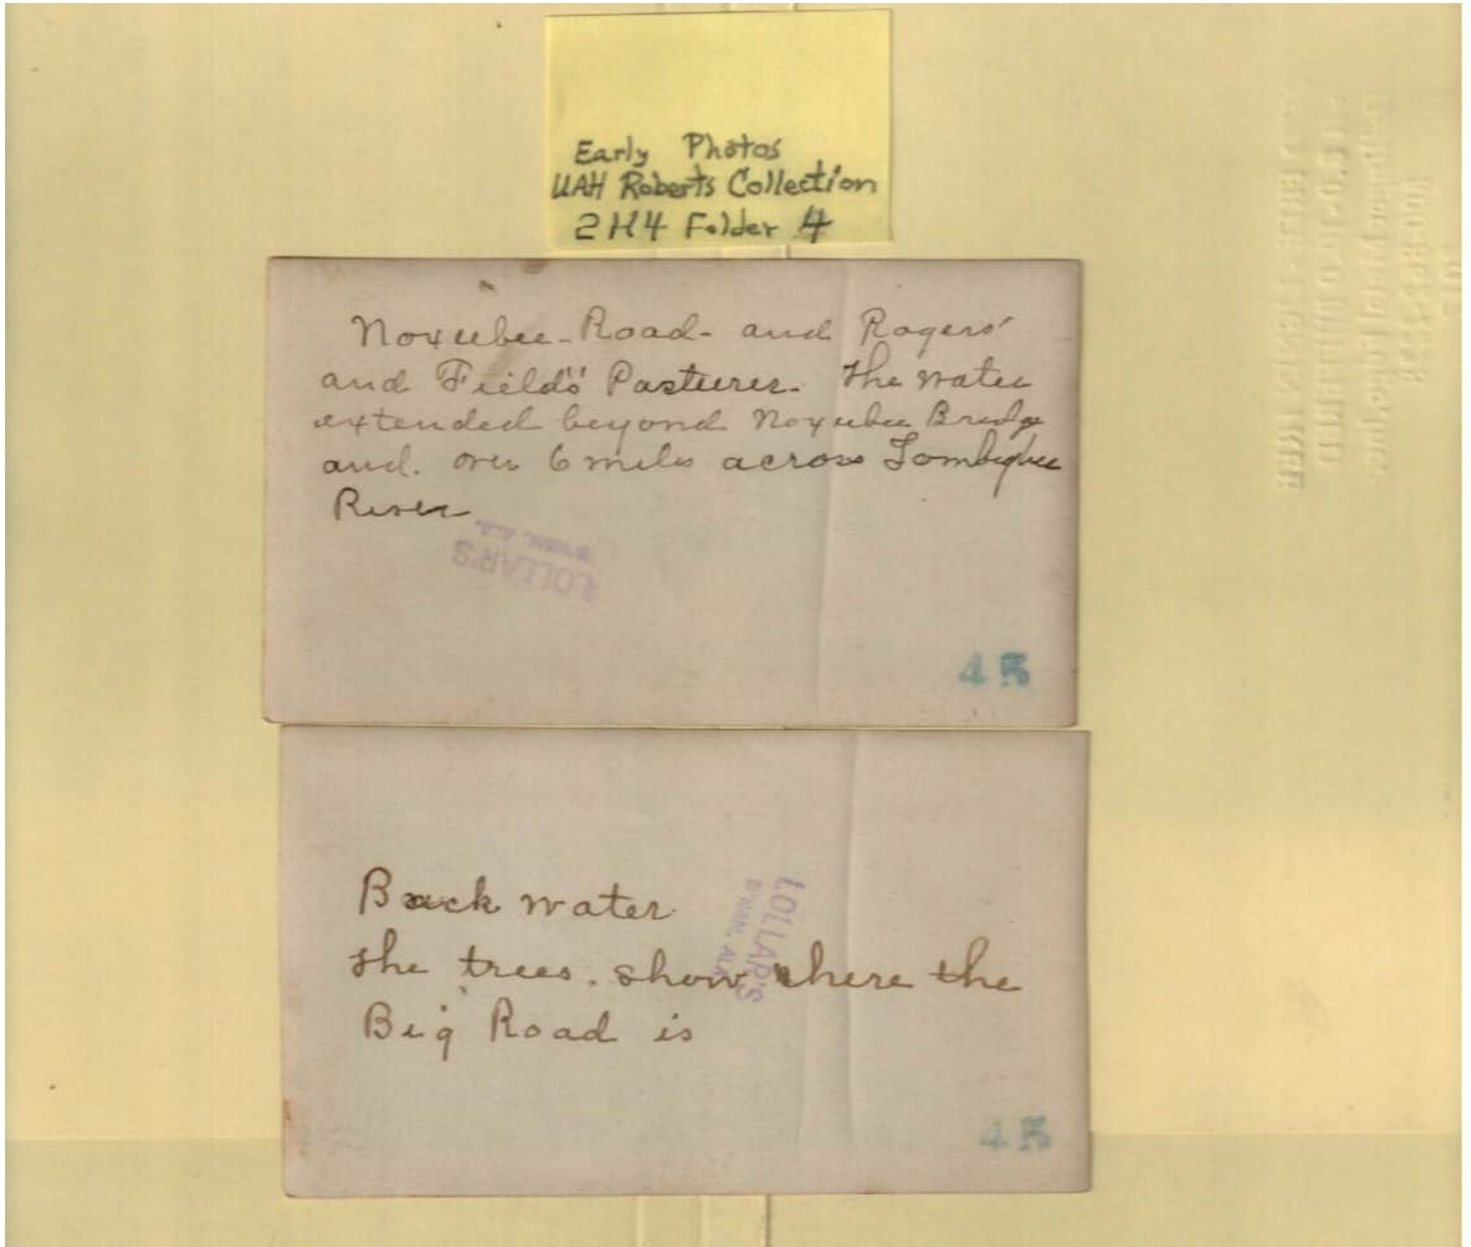 Early Photos
UAH Roberts Collection
2H4 Folder 4
Noxubee-Road- and Rogers'
and Field's' Pastures. The water
extended beyond Noxubee Bridge
and. over 6 miles across Tombigbee
River
LOLLAR'S
B'HAM, ALA.
45
Back water
LOLLAR'S
B'HAM, ALA.
the trees. show where the
Big Road is
45